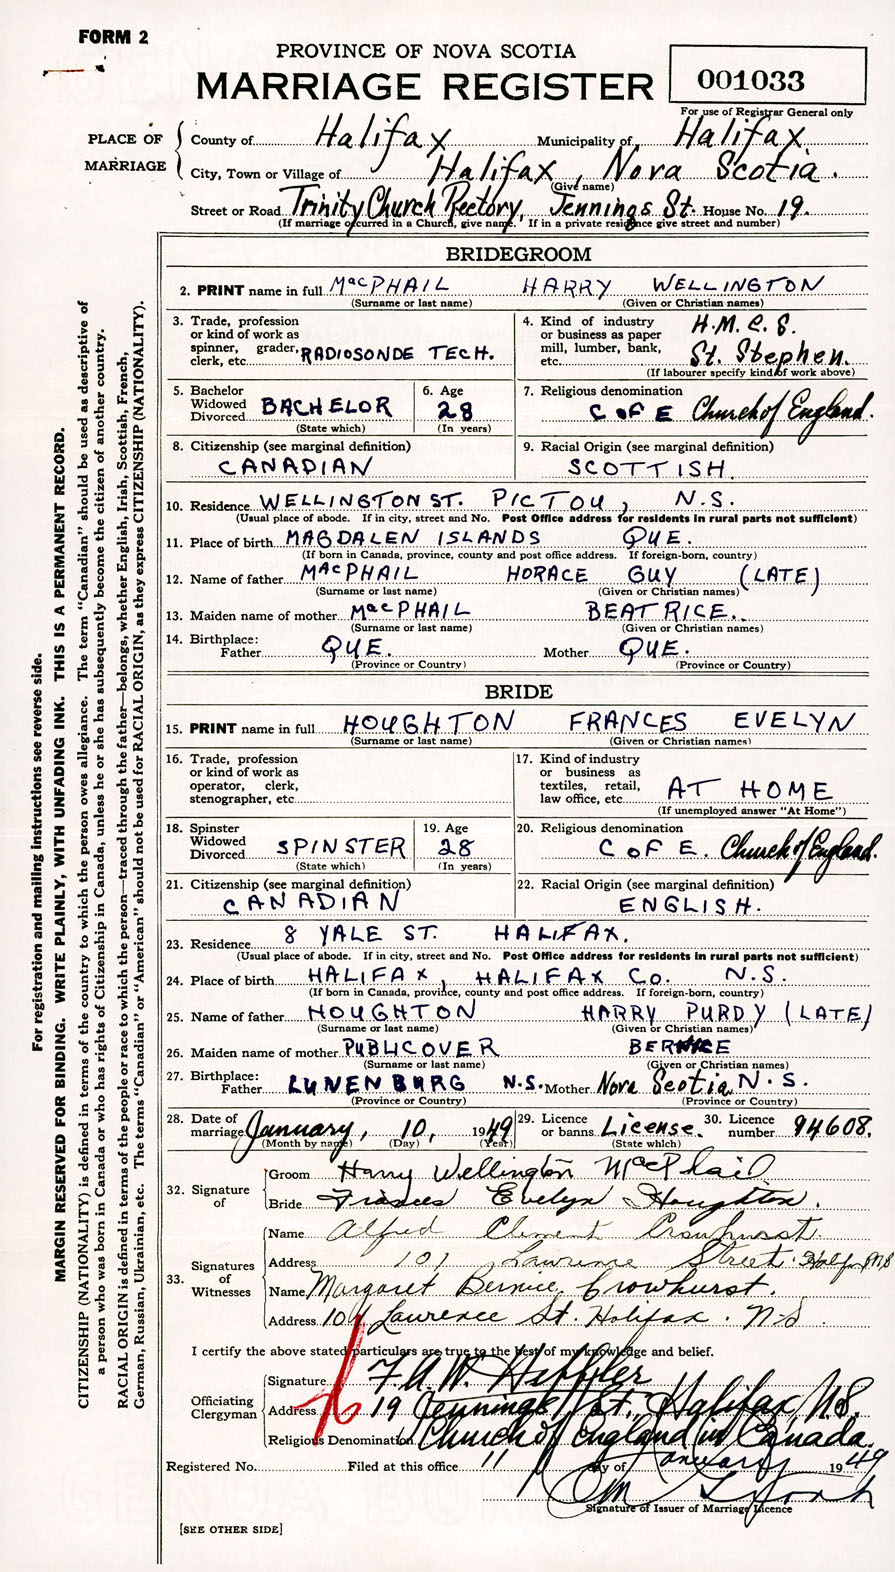 FORM 2
PROVINCE OF NOVA SCOTIA
MARRIAGE REGISTER
001033
For use of Registrar General only
PLACE OF MARRIAGE
County of Halifax Municipality of Halifax.
City, Town or Village of Halifax, Nova Scotia.
(Give name)
Street or Road Trinity Church Rectory, Jennings St. House No. 19.
(If marriage occurred in a Church, give name. If in a private residence give street and number)
BRIDEGROOM
2. PRINT name in full MacPHAIL HARRY WELLINGTON
(Surname or last name) (Given or Christian names)
3. Trade, profession or kind of work as spinner, grader, clerk, etc. RADIOSONDE TECH.
4. Kind of industry or business as paper mill, lumber, bank, etc. H.M.C.S. St. Stephen.
(If labourer specify kind of work above)
5. Bachelor Widowed Divorced BACHELOR
(State which)
6. Age 28
(In years)
7. Religious denomination C OF E Church of England.
8. Citizenship (see marginal definition)
CANADIAN
9. Racial Origin (see marginal definition)
SCOTTISH.
10. Residence WELLINGTON ST. PICTOU, N.S.
(Usual place of abode. If in city, street and No. Post Office address for residents in rural parts not sufficient)
11. Place of birth MAGDALEN ISLANDS QUE.
(If born in Canada, province, county and post office address. If foreign-born, country)
12. Name of father MacPHAIL HORACE GUY (LATE)
(Surname or last name) (Given or Christian names)
13. Maiden name of mother MacPHAIL BEATRICE.
(Surname or last name) (Given or Christian names)
14. Birthplace:
Father QUE. Mother QUE.
(Province or Country) (Province or Country)
BRIDE
15. PRINT name in full HOUGHTON FRANCES EVELYN
(Surname or last name) (Given or Christian names)
16. Trade, profession or kind of work as operator, clerk, stenographer, etc.
17. Kind of industry or business as textiles, retail, law office, etc. AT HOME
(If unemployed answer "At Home")
18. Spinster Widowed Divorced SPINSTER
(State which)
19. Age 28
(In years)
20. Religious denomination
C OF E. Church of England.
21. Citizenship (see marginal definition)
CANADIAN
22. Racial Origin (see marginal definition)
ENGLISH.
23. Residence 8 YALE ST. HALIFAX.
(Usual place of abode. If in city, street and No. Post Office address for residents in rural parts not sufficient)
24. Place of birth HALIFAX, HALIFAX CO. N.S.
(If born in Canada, province, county and post office address. If foreign-born, country)
25. Name of father HOUGHTON HARRY PURDY (LATE)
(Surname or last name) (Given or Christian names)
26. Maiden name of mother PUBLICOVER BERNICE
(Surname or last name) (Given or Christian names)
27. Birthplace:
Father LUNENBURG N.S. Mother Nova Scotia N.S.
(Province or Country) (Province or Country)
28. Date of marriage January, 10, 1949
(Month by name) (Day) (Year)
29. Licence or banns License.
(State which)
30. Licence number 94608.
32. Signature of
Groom Harry Wellington MacPhail
Bride Frances Evelyn Houghton.
33. Signatures of Witnesses
Name Alfred Clement Crowhurst.
Address 101 Lawrence Street. Halifax N.S
Name Margaret Bernice Crowhurst.
Address 101 Lawrence St. Halifax. N-S
I certify the above stated particulars are true to the best of my knowledge and belief.
Officiating Clergyman
Signature F.A.W.
Address 19 Jennings St., Halifax, N.S.
Religious Denomination Church of England in Canada.
Registered No. Filed at this office 11 day of January 1949
Signature of Issuer of Marriage Licence
[SEE OTHER SIDE]
For registration and mailing instructions see reverse side.
MARGIN RESERVED FOR BINDING. WRITE PLAINLY, WITH UNFADING INK. THIS IS A PERMANENT RECORD.
CITIZENSHIP (NATIONALITY) is defined in terms of the country to which the person owes allegiance. The term "Canadian" should be used as descriptive of
a person who was born in Canada or who has rights of Citizenship in Canada, unless he or she has subsequently become the citizen of another country.
RACIAL ORIGIN is defined in terms of the people or race to which the person—traced through the father—belongs, whether English, Irish, Scottish, French,
German, Russian, Ukrainian, etc. The terms "Canadian" or "American" should not be used for RACIAL ORIGIN, as they express CITIZENSHIP (NATIONALITY).